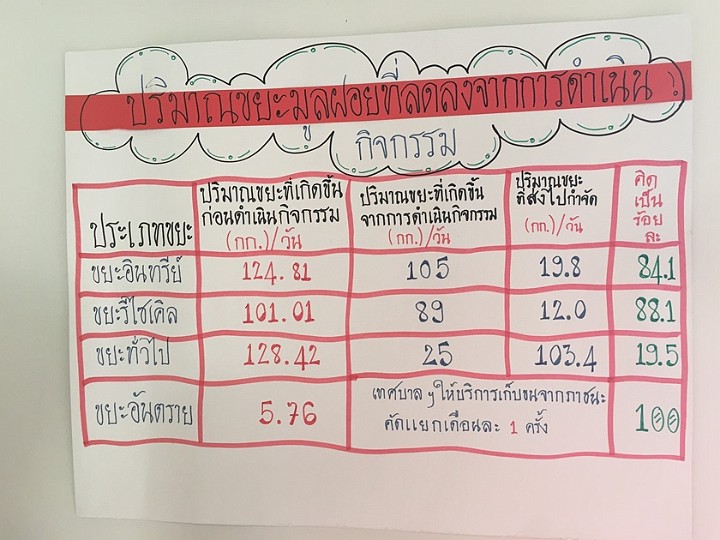 ปริมาณขยะมูลฝอยที่ลดลงจากการดำเนิน
กิจกรรม
ประเภทขยะ
ปริมาณขยะที่เกิดขึ้น
ก่อนดำเนินกิจกรรม
(กก.)/วัน
ปริมาณขยะที่เกิดขึ้น
จากการดำเนินกิจกรรม
(กก.)/วัน
ปริมาณขยะ
ที่ส่งไปกำจัด
(กก.)/วัน
คิด
เป็น
ร้อย
ละ
ขยะอินทรีย์ 124.81 105 19.8 84.1
ขยะรีไซเคิล 101.01 89 12.0 88.1
ขยะทั่วไป 128.42 25 103.4 19.5
ขยะอันตราย 5.76 เทศบาลฯให้บริการเก็บขนจากภาชนะ
คัดแยกเดือนละ 1 ครั้ง 100